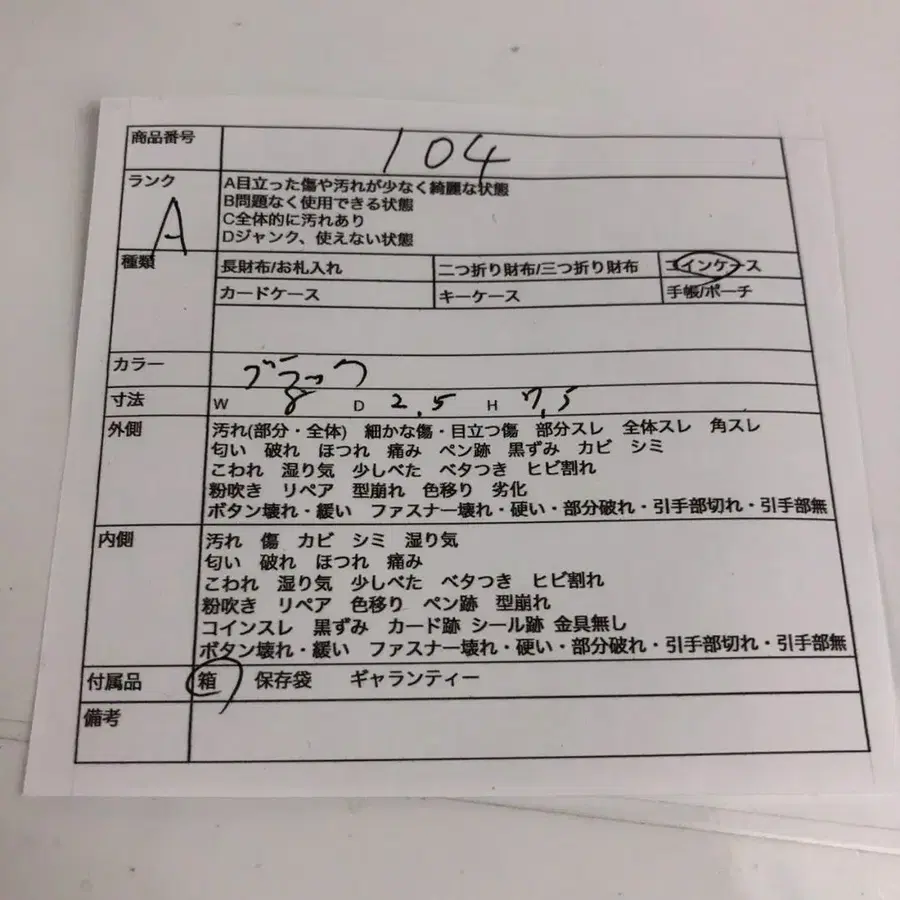 商品番号 104
ランク A
A目立った傷や汚れが少なく綺麗な状態
B問題なく使用できる状態
C全体的に汚れあり
Dジャンク、使えない状態
種類 長財布/お札入れ 二つ折り財布/三つ折り財布 コインケース
カードケース キーケース 手帳/ポーチ
カラー ブラック
寸法 W 8 D 2.5 H 7.5
外側 汚れ(部分・全体) 細かな傷・目立つ傷 部分スレ 全体スレ 角スレ
匂い 破れ ほつれ 痛み ペン跡 黒ずみ カビ シミ
こわれ 湿り気 少しべた ベタつき ヒビ割れ
粉吹き リペア 型崩れ 色移り 劣化
ボタン壊れ・緩い ファスナー壊れ・硬い・部分破れ・引手部切れ・引手部無
内側 汚れ 傷 カビ シミ 湿り気
匂い 破れ ほつれ 痛み
こわれ 湿り気 少しべた ベタつき ヒビ割れ
粉吹き リペア 色移り ペン跡 型崩れ
コインスレ 黒ずみ カード跡 シール跡 金具無し
ボタン壊れ・緩い ファスナー壊れ・硬い・部分破れ・引手部切れ・引手部無
付属品 箱 保存袋 ギャランティー
備考